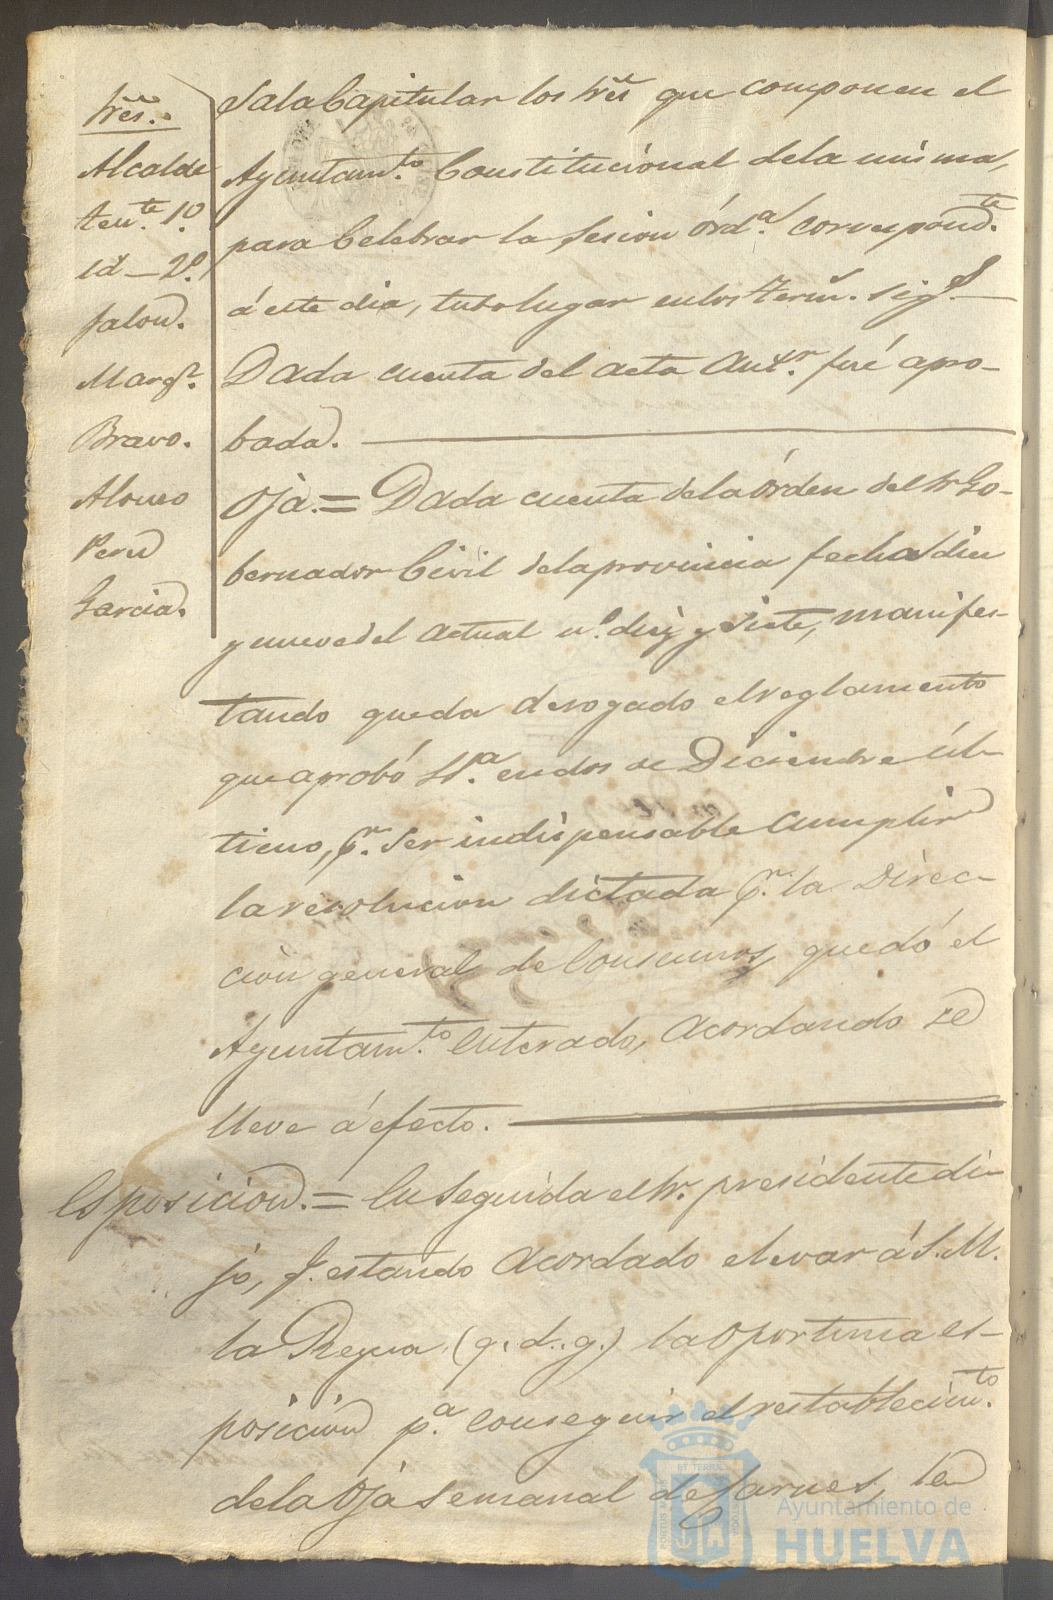 Sres.
Alcalde
Ten.te 1.º
Id — 2.º
Jalon.
Marq.z
Bravo.
Alonso
Peru
Garcia.
Sala Capitular los Sres que componen el
Ayuntam.to Constitucional dela misma,
para Celebrar la sesion órd.a correspond.te
á este dia, tubo lugar en los term.s sig.s
Dada cuenta del acta Ant.r fué apro-
bada.
Oja. = Dada cuenta dela órden del Sr Go-
bernador Civil dela provincia fecha diez
y nuebe del actual n.º diez y siete, manifes-
tando queda derogado el reglamento
que aprobó S.a en dos de Diciembre úl-
timo, p.r ser indispensable Cumplir
la resolucion dictada p.r la Direc-
cion general de Consumos, quedó el
Ayuntam.to enterado, acordando se
lleve á efecto.
Esposicion. = En Seguida el Sr. presidente di-
jo, q. estando acordado elevar á S. M.
la Reyna (q. d. g.) la oportuna es-
posicion p.a conseguir el restablecim.to
dela Oja semanal de Carnes, se
PORTUS MARIS ET TERRAE CUSTODIA
Ayuntamiento de
HUELVA